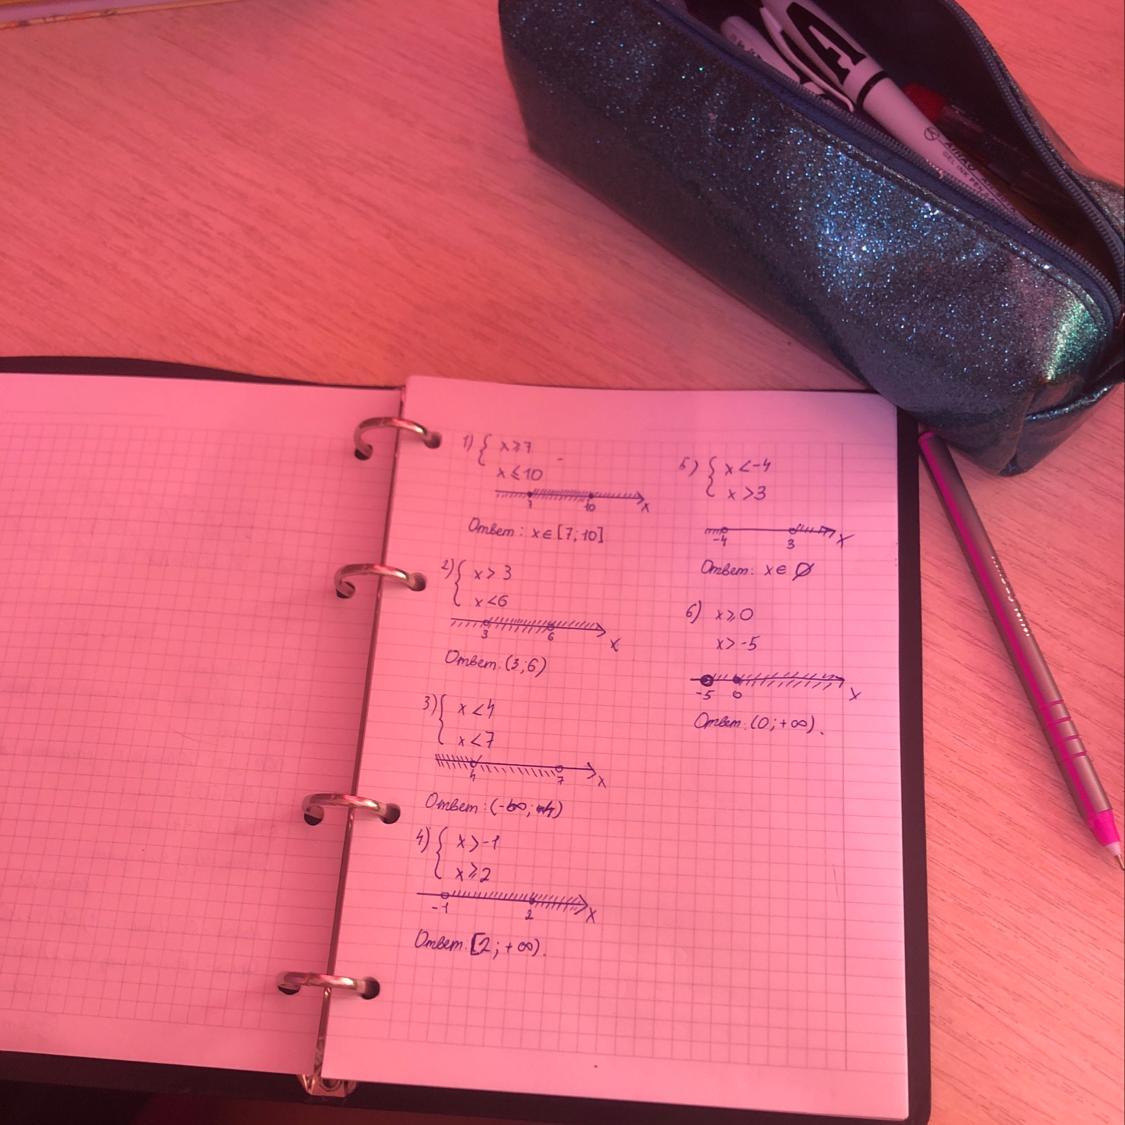 1) { x ≥ 7
x ≤ 10
7 10 x
Ответ: x ∈ [7; 10]
2) { x > 3
x < 6
3 6 x
Ответ. (3; 6)
3) { x < 4
x < 7
4 7 x
Ответ: (-∞; 4)
4) { x > -1
x ≥ 2
-1 2 x
Ответ. [2; +∞).
5) { x < -4
x > 3
-4 3 x
Ответ: x ∈ ∅
6) x ≥ 0
x > -5
-5 0 x
Ответ. (0; +∞).